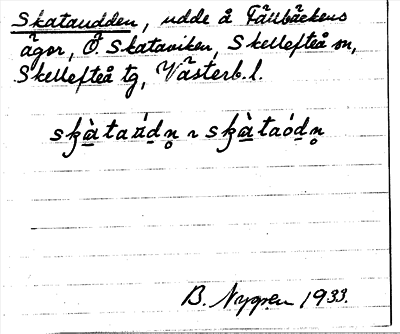 Skataudden, udde å Fällbäckens
ägor, Ö Skataviken, Skellefteå sn,
Skellefteå tg, Västerb. l.
skàtaúdn̥ ~ skàtaódn̥
B. Nygren 1933.